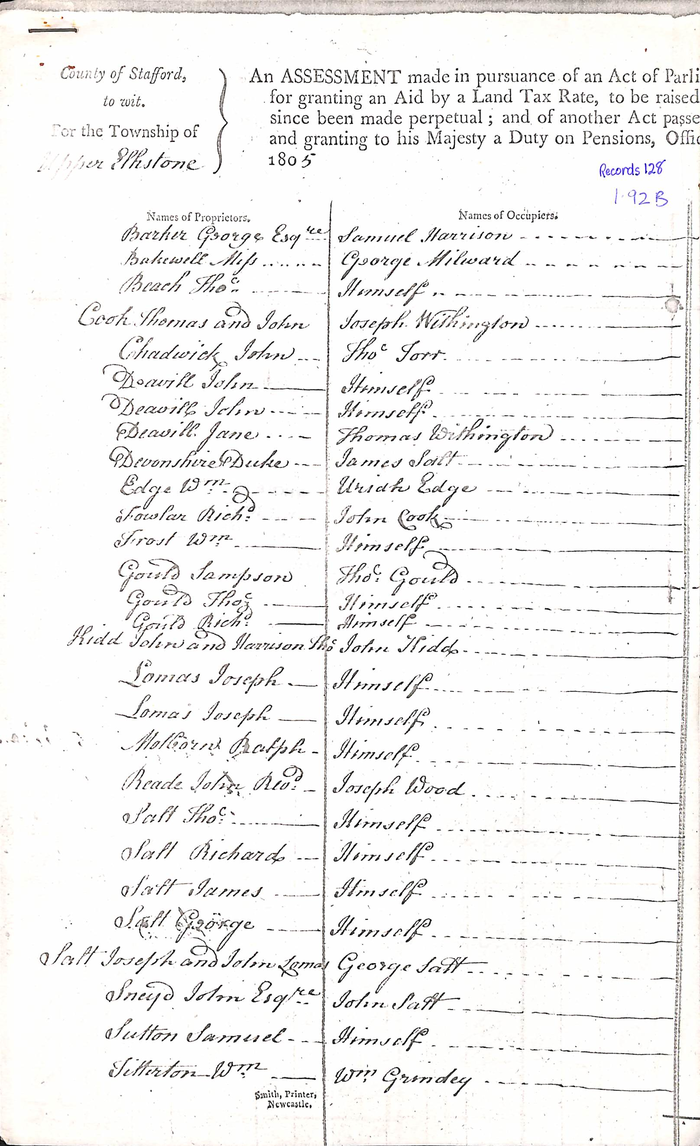 County of Stafford,
to wit.
For the Township of
Upper Elkstone
An ASSESSMENT made in pursuance of an Act of Parli
for granting an Aid by a Land Tax Rate, to be raised
since been made perpetual; and of another Act passe
and granting to his Majesty a Duty on Pensions, Offic
1805
Records 128
1·92B
Names of Proprietors. Names of Occupiers.
Barker George Esqre Samuel Harrison
Bakewell Miss George Milward
Beach Thos. Himself
Cook Thomas and John Joseph Withington
Chadwick John Thos Torr
Deavill John Himself
Deavill John Himself
Deavill Jane Thomas Withington
Devonshire Duke James Salt
Edge Wm Uriah Edge
Fowlar Richd John Cook
Frost Wm Himself
Gould Sampson Thos. Gould
Gould Thos. Himself
Gould Richd Himself
Kidd John and Harrison Thos John Kidd
Lomas Joseph Himself
Lomas Joseph Himself
Ralph Himself
Reade John Revd Joseph Wood
Salt Thos. Himself
Salt Richard Himself
Salt James Himself
Salt George Himself
Salt Joseph and John Lomas George Salt
Sneyd John Esqre John Salt
Sutton Samuel Himself
Titterton Wm Wm Grindey
Smith, Printer,
Newcastle.